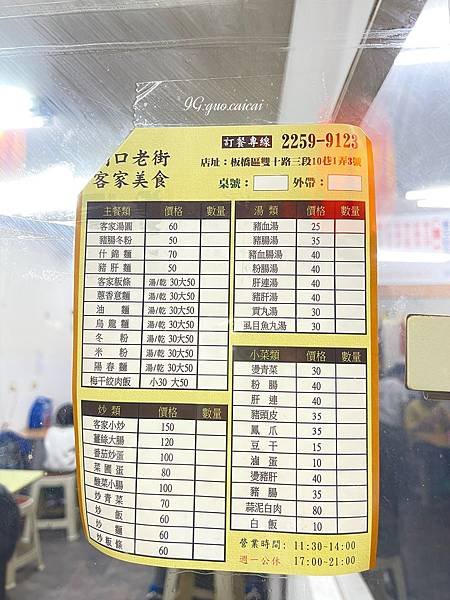 9G.quo.caicai
訂餐專線 2259-9123
口老街
客家美食
店址：板橋區雙十路三段10巷1弄3號
桌號： 外帶：
主餐類 價格 數量
客家湯圓 60
豬腸冬粉 50
什錦麵 70
豬肝麵 50
客家粄條 湯/乾 30大50
蔥香意麵 湯/乾 30大50
油麵 湯/乾 30大50
烏龍麵 湯/乾 30大50
冬粉 湯/乾 30大50
米粉 湯/乾 30大50
陽春麵 湯/乾 30大50
梅干絞肉飯 小30 大50
炒類 價格 數量
客家小炒 150
薑絲大腸 120
番茄炒蛋 100
菜圃蛋 80
酸菜小腸 100
炒青菜 70
炒飯 60
炒麵 60
炒粄條 60
湯類 價格 數量
豬血湯 25
豬腸湯 35
豬血腸湯 40
粉腸湯 40
肝連湯 40
豬肝湯 40
貢丸湯 30
虱目魚丸湯 30
小菜類 價格 數量
燙青菜 30
粉腸 40
肝連 40
豬頭皮 35
鳳爪 35
豆干 15
滷蛋 10
燙豬肝 40
豬腸 35
蒜泥白肉 80
白飯 10
營業時間：11:30-14:00
週一公休 17:00-21:00